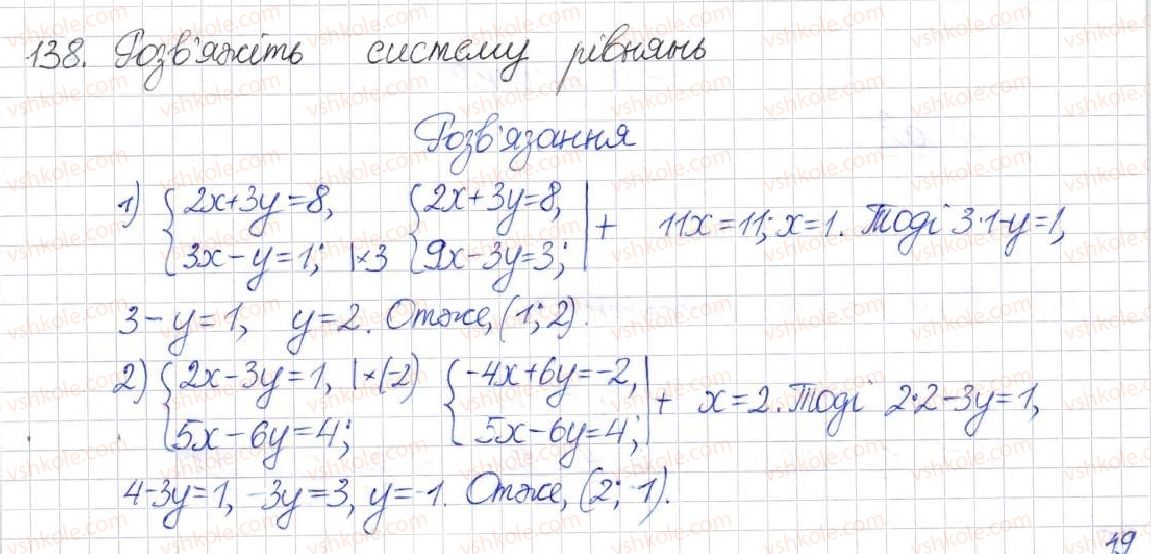 138. Розв'яжіть систему рівнянь
Розв'язання
1) {2x+3y=8, 3x-y=1; |×3 {2x+3y=8, 9x-3y=3; | + 11x=11; x=1. Тоді 3·1-y=1,
3-y=1, y=2. Отже, (1; 2).
2) {2x-3y=1, |×(-2) 5x-6y=4; {-4x+6y=-2, 5x-6y=4; | + x=2. Тоді 2·2-3y=1,
4-3y=1, -3y=3, y=-1. Отже, (2; -1).
19
vshkole.com